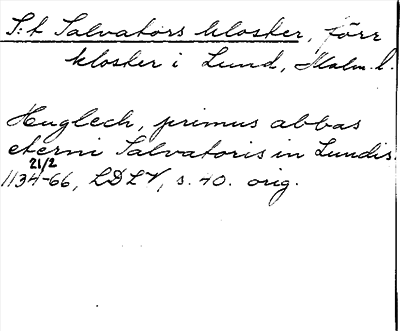 S:t Salvators kloster, förr
kloster i Lund, Malm. l.
Huglech, primus abbas
eterni Salvatoris in Lundis.
21/2
1134-66, LDLV, s. 40. orig.